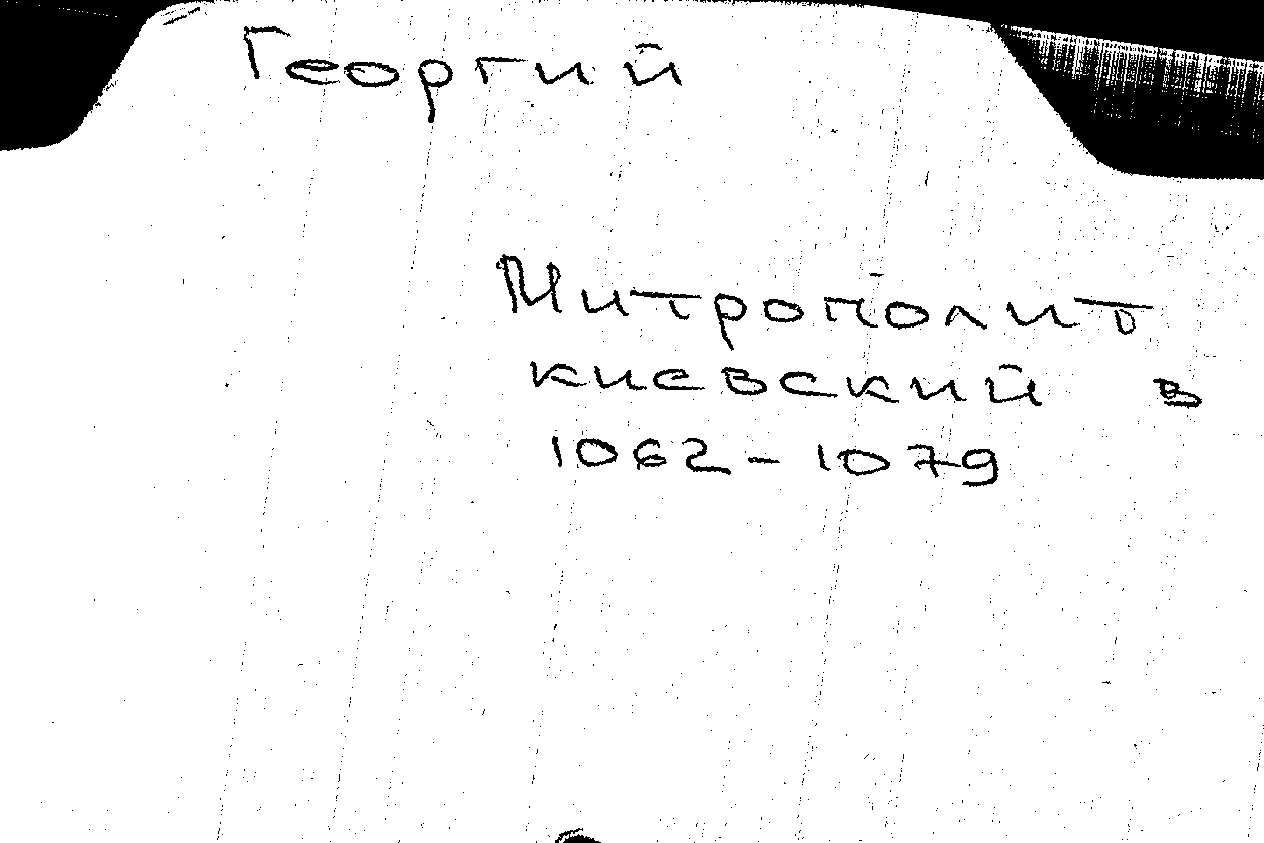 Георгий
Митрополит
киевский в
1062-1079